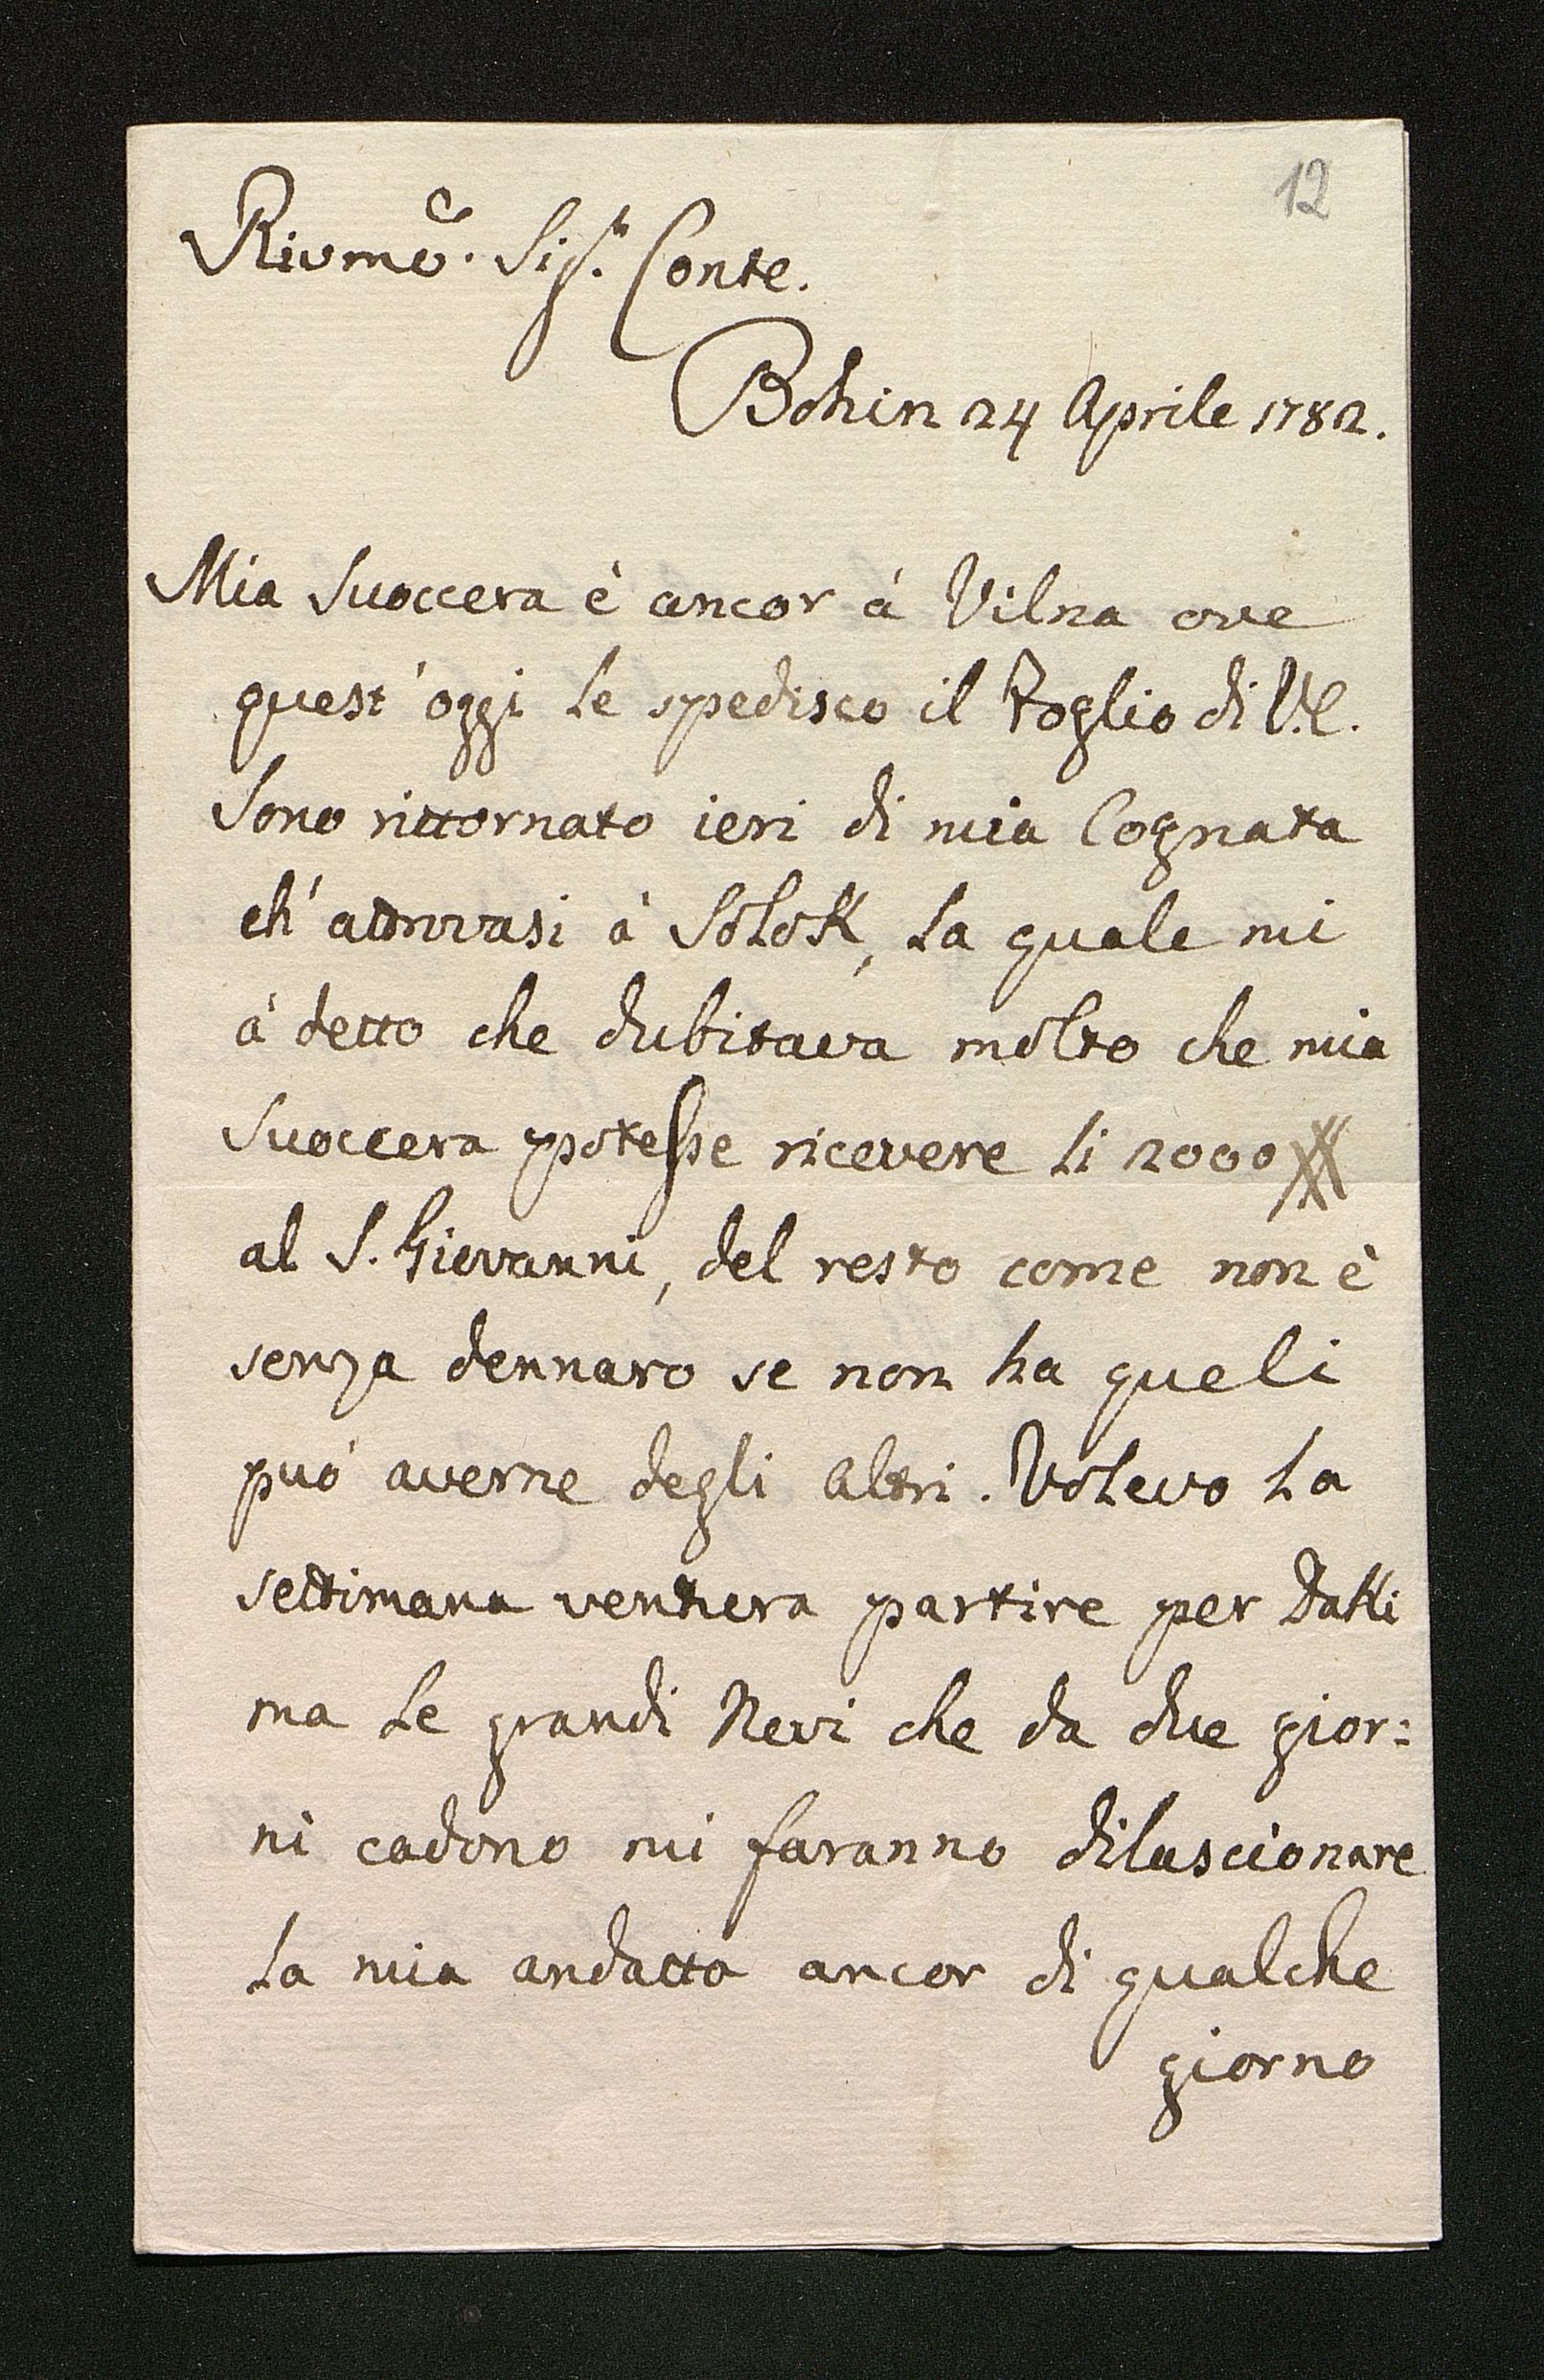 12
Rivmo. Sigr. Conte.
Bohin 24 Aprile 1782.
Mia Suoccera è ancor á Vilna ove
quest'oggi le spedisco il Foglio di V.E.
Sono rittornato ieri di mia Cognata
ch'attrovasi à Solok, la quale mi
à detto che dubitava molto che mia
Suoccera potesse ricevere li 2000 ##
al S. Giovanni, del resto come non è
senza dennaro se non ha queli
può averne degli altri. Volevo la
settimana ventura partire per
ma le grandi Nevi che da due gior=
ni cadono mi faranno dilascionare
la mia andatta ancor di qualche
giorno